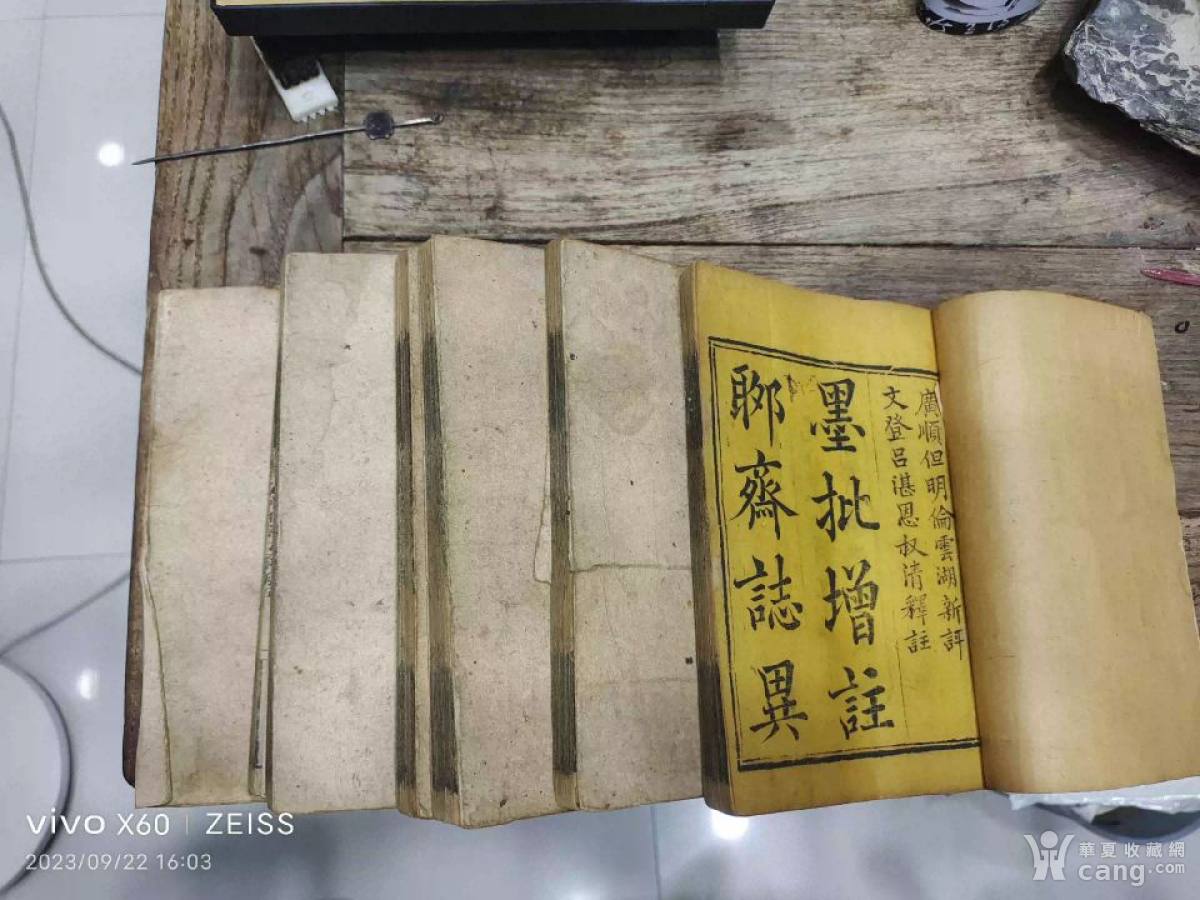 廣順但明倫雲湖新評
文登呂湛恩叔清釋註
墨批增註
聊齋誌異
vivo X60 | ZEISS
2023/09/22 16:03
華夏收藏網
cang.com